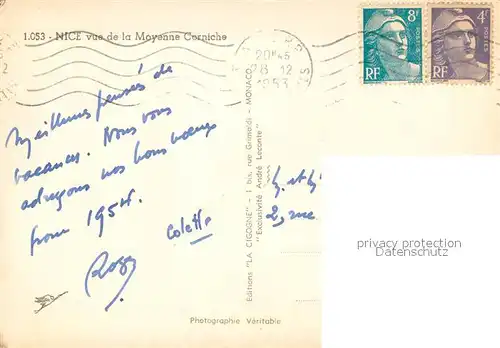 1.053 - NICE vue de la Moyenne Corniche
20H45
28 12
1953
8F
POSTES
RF
4F
POSTES
RF
Meilleures pensées de
vacances. Nous vous
adressons nos bons voeux
pour 1954.
Colette
Roger
Editions "LA CIGOGNE" - 1 bis, rue Grimaldi - MONACO
"Exclusivité André Leconte"
et
2, rue
privacy protection
Datenschutz
Photographie Véritable